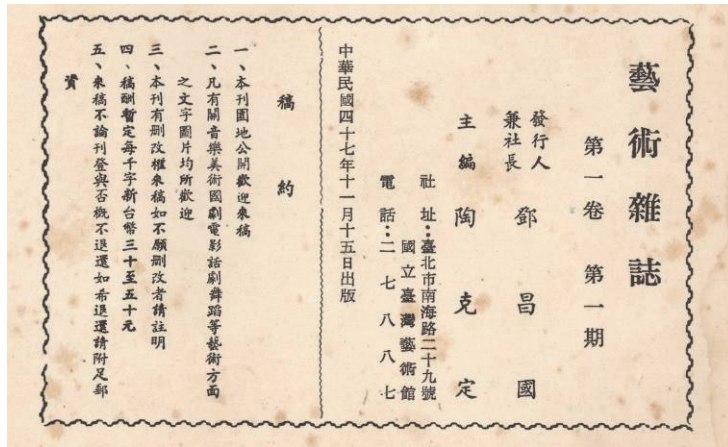 藝術雜誌
第一卷 第一期
發行人
兼社長
鄧昌國
主編 陶克定
社址：臺北市南海路二十九號
國立臺灣藝術館
電話：二七八八七
中華民國四十七年十一月十五日出版
稿約
一、本刊園地公開歡迎來稿
二、凡有關音樂美術國劇電影話劇舞蹈等藝術方面
之文字圖片均所歡迎
三、本刊有刪改權來稿如不願刪改者請註明
四、稿酬暫定每千字新台幣三十至五十元
五、來稿不論刊登與否概不退還如希退還請附足郵
資